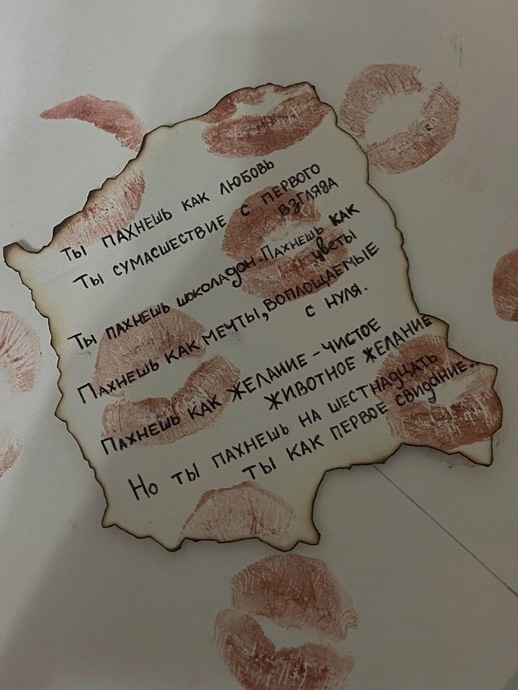 Ты пахнешь как любовь
Ты сумасшествие с первого
взгляда
Ты пахнешь шоколадом. Пахнешь как
цветы
Пахнешь как мечты, воплощаемые
с нуля.
Пахнешь как желание - чистое
животное желание
Но ты пахнешь на шестнадцать
ты как первое свидание..